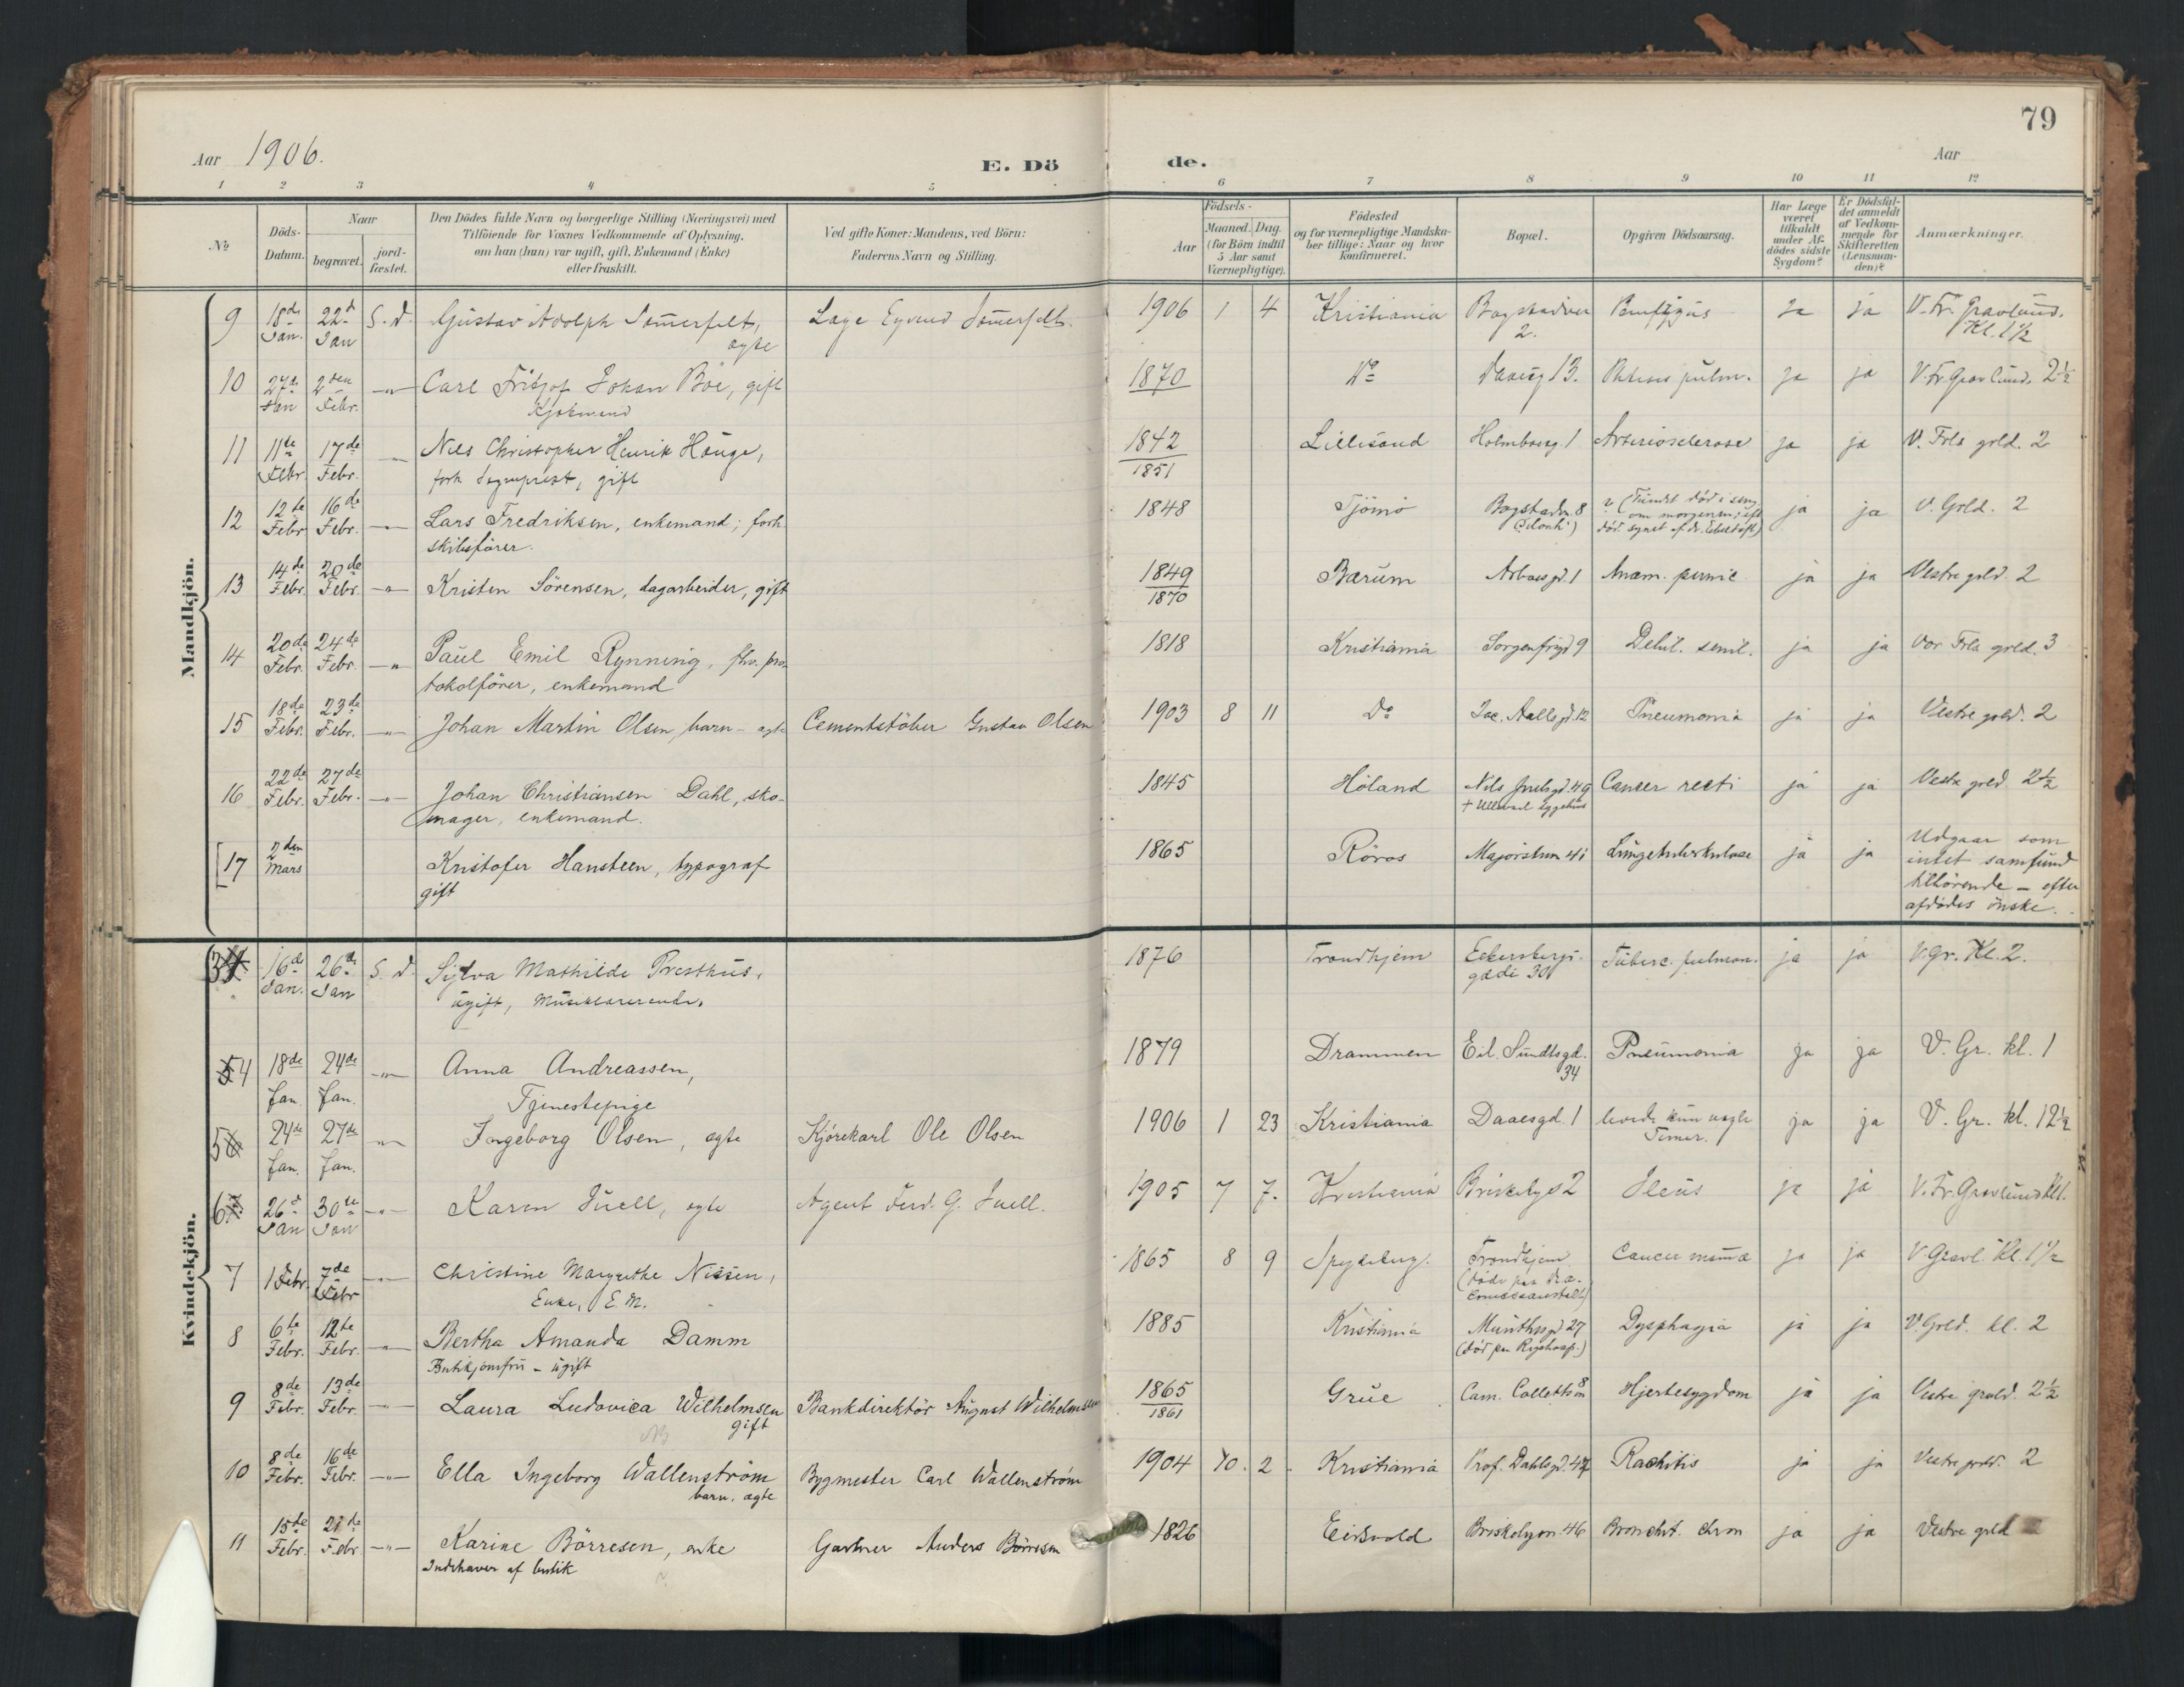 79
Aar 1906.
E. Dö de.
Aar
1 2 3 4 5 6 7 8 9 10 11 12
No
Döds-Datum.
Naar
begravet.
jordfæstet.
Den Dödes fulde Navn og borgerlige Stilling (Næringsvei) med
Tilföiende for Voxnes Vedkommende af Oplysning,
om han (hun) var ugift, gift, Enkemand (Enke)
eller fraskilt.
Ved gifte Koner: Mandens, ved Börn:
Faderens Navn og Stilling.
Födsels-
Aar
Maaned. Dag.
(for Börn indtil
5 Aar samt
Værnepligtige).
Födested
og for værnepligtige Mandska-
ber tillige: Naar og hvor
Konfirmeret.
Bopæl.
Opgiven Dödsaarsag.
Har Læge
været
tilkaldt
under Af-
dödes sidste
Sygdom?
Er Dödsfal-
det anmeldt
af Vedkom-
mende for
Skifteretten
(Lensman-
den)?
Anmærkninger.
Mandkjön.
9 18de Jan. 22d Jan S. d. Gustav Adolph Sommerfelt, ægte
1906 1 4 Kristiania 2. ja ja V. Fr. Gravlund. Kl. 1 1/2
10 27d Jan 2den Febr. -"- Carl Fritjof Johan Böe, gift
1870 Do 13. pulm. ja ja V. Fr. Gravlund. 2 1/2
11 11te Febr. 17de Febr. -"- Nils Christopher Henrik Hauge,
forh. Sogneprest, gift
1842
1851
Lillesand 1 Arteriosclerose ja ja V. Frls grld. 2
12 12te Febr. 16de Febr. -"- Lars Fredriksen, enkemand, forh.
skibsförer.
1848 Tjömö Bogstadvn. 8 ? (Fundet död i seng
om morgenen;
ja ja V. Grld. 2
13 14de Febr. 20de Febr. -"- Kristen Sörensen, dagarbeider, gift
1849
1870
Bærum 1 Anæm. pernic. ja ja Vestre grld. 2
14 20de Febr. 24de Febr. -"- Paul Emil Rynning, fhv. pro-
tokolförer, enkemand
1818 Kristiania Sorgenfrigd 9 Debil. senil. ja ja Vor Frls grld. 3
15 18de Febr. 23de Febr. -"- Johan Martin Olsen, barn - ægte Cementstöber Gustav Olsen
1903 8 11 Do Jac. Aallsgd. 12 Pneumonia ja ja Vestre grld. 2
16 22de Febr. 27de Febr. -"- Johan Christiansen Dahl, sko-
mager, enkemand.
1845 Höland Nils Juelsgd. 49 Cancer recti ja ja Vestre grld. 2 1/2
[17 2den Mars Kristofer Hansteen, typograf
gift
1865 Röros Majorstuen 41 Lungetuberkulose ja ja Udgaar som
intet samfund
tilhörende - efter
afdödes önske.
Kvindekjön.
3 16de Jan. 26de Jan S. d. Sylva Mathilde Presthus,
ugift, Musiklærerinde.
1876 Trondhjem Eckersbergs-
gade 30 Tuberc. pulmon. ja ja V. Gr. Kl. 2.
4 18de Jan. 24de Jan. -"- Anna Andreassen,
Tjenestepige
1879 Drammen Eil. Sundtsgd.
34 Pneumonia ja ja V. Gr. kl. 1
5 24de Jan. 27de Jan. -"- Ingeborg Olsen, ægte Kjörekarl Ole Olsen
1906 1 23 Kristiania Daaesgd. 1 levede kun nogle
Timer. ja ja V. Gr. kl. 1 2 1/2
6 26d Jan 30te Jan -"- Karen Juell, ægte Agent Ferd. G. Juell.
1905 7 7. Kristiania Briskebyv 2 Ileus ja ja V. Fr. Gravlund Kl.
7 1 Febr. 7de Febr -"- Christine Margrethe Nissen,
Enke, E. M.
1865 8 9 Spydeberg. Trondhjem Cancer mamma ja ja V. Gravl. Kl. 1 1/2
8 6te Febr. 12te Febr. -"- Bertha Amanda Damm
Butikjomfru - ugift
1885 Kristiania Munthesgd 27
(död paa Rigshosp.) Dysphagia ja ja V. Grld. kl. 2
9 8de Febr. 13de Febr. -"- Laura Ludovica Wilhelmsen
gift Bankdirektör August Wilhelmsen
1865
1861
Grue Cam. Collettsvn 8 Hjertesygdom ja ja Vestre gravld. 2 1/2
10 8de Febr. 16de Febr. -"- Ella Ingeborg Wallenström
barn. ægte Bygmester Carl Wallenström
1904 10. 2 Kristiania Prof. Dahlsgd. Rachitis ja ja Vestre grld. 2
11 15de Febr. 21de Febr -"- Karine Börresen, enke
Indehaver af butik Gartner Anders Börresen
1826 Eidsvold Briskebyvn. 46 Bronchit. chron ja ja Vestre grld